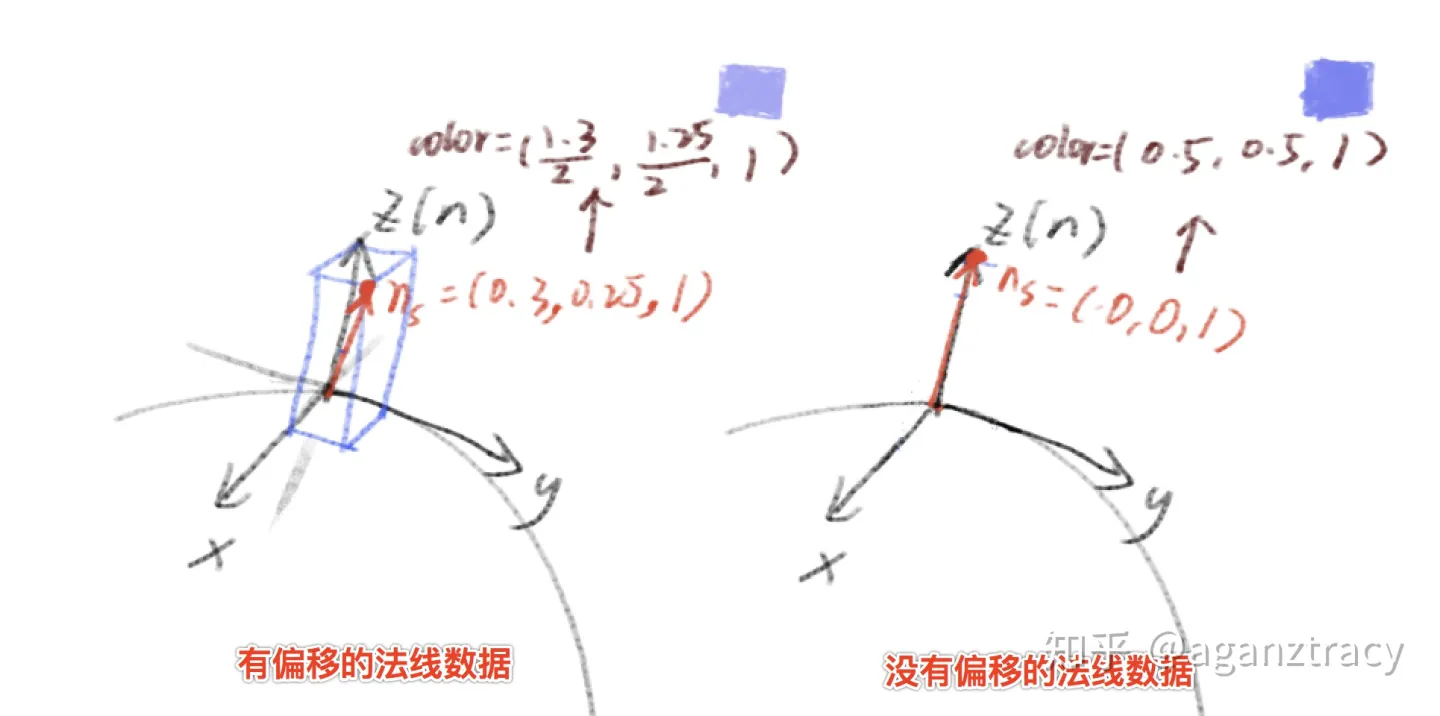 color=(1.3/2, 1.25/2, 1)
Z(n)
ns=(0.3,0.25,1)
y
x
有偏移的法线数据
color=(0.5, 0.5, 1)
Z(n)
ns=(0,0,1)
y
x
没有偏移的法线数据
知乎 @aganztracy